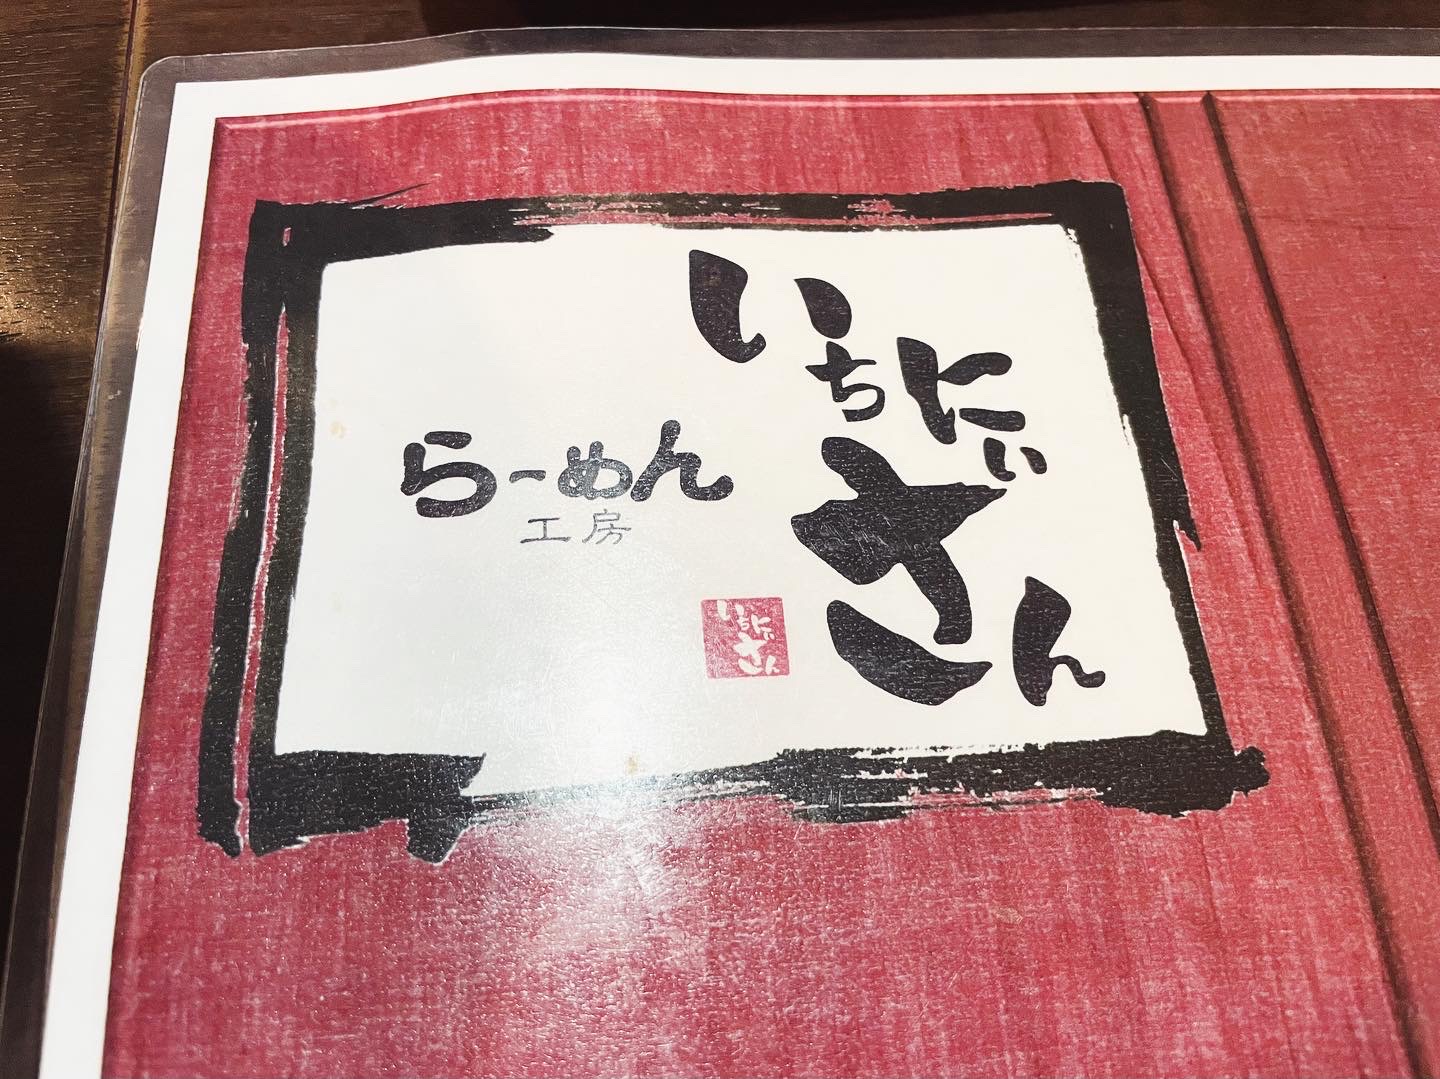 らーめん
工房
いちにぃさん
いちにぃさん